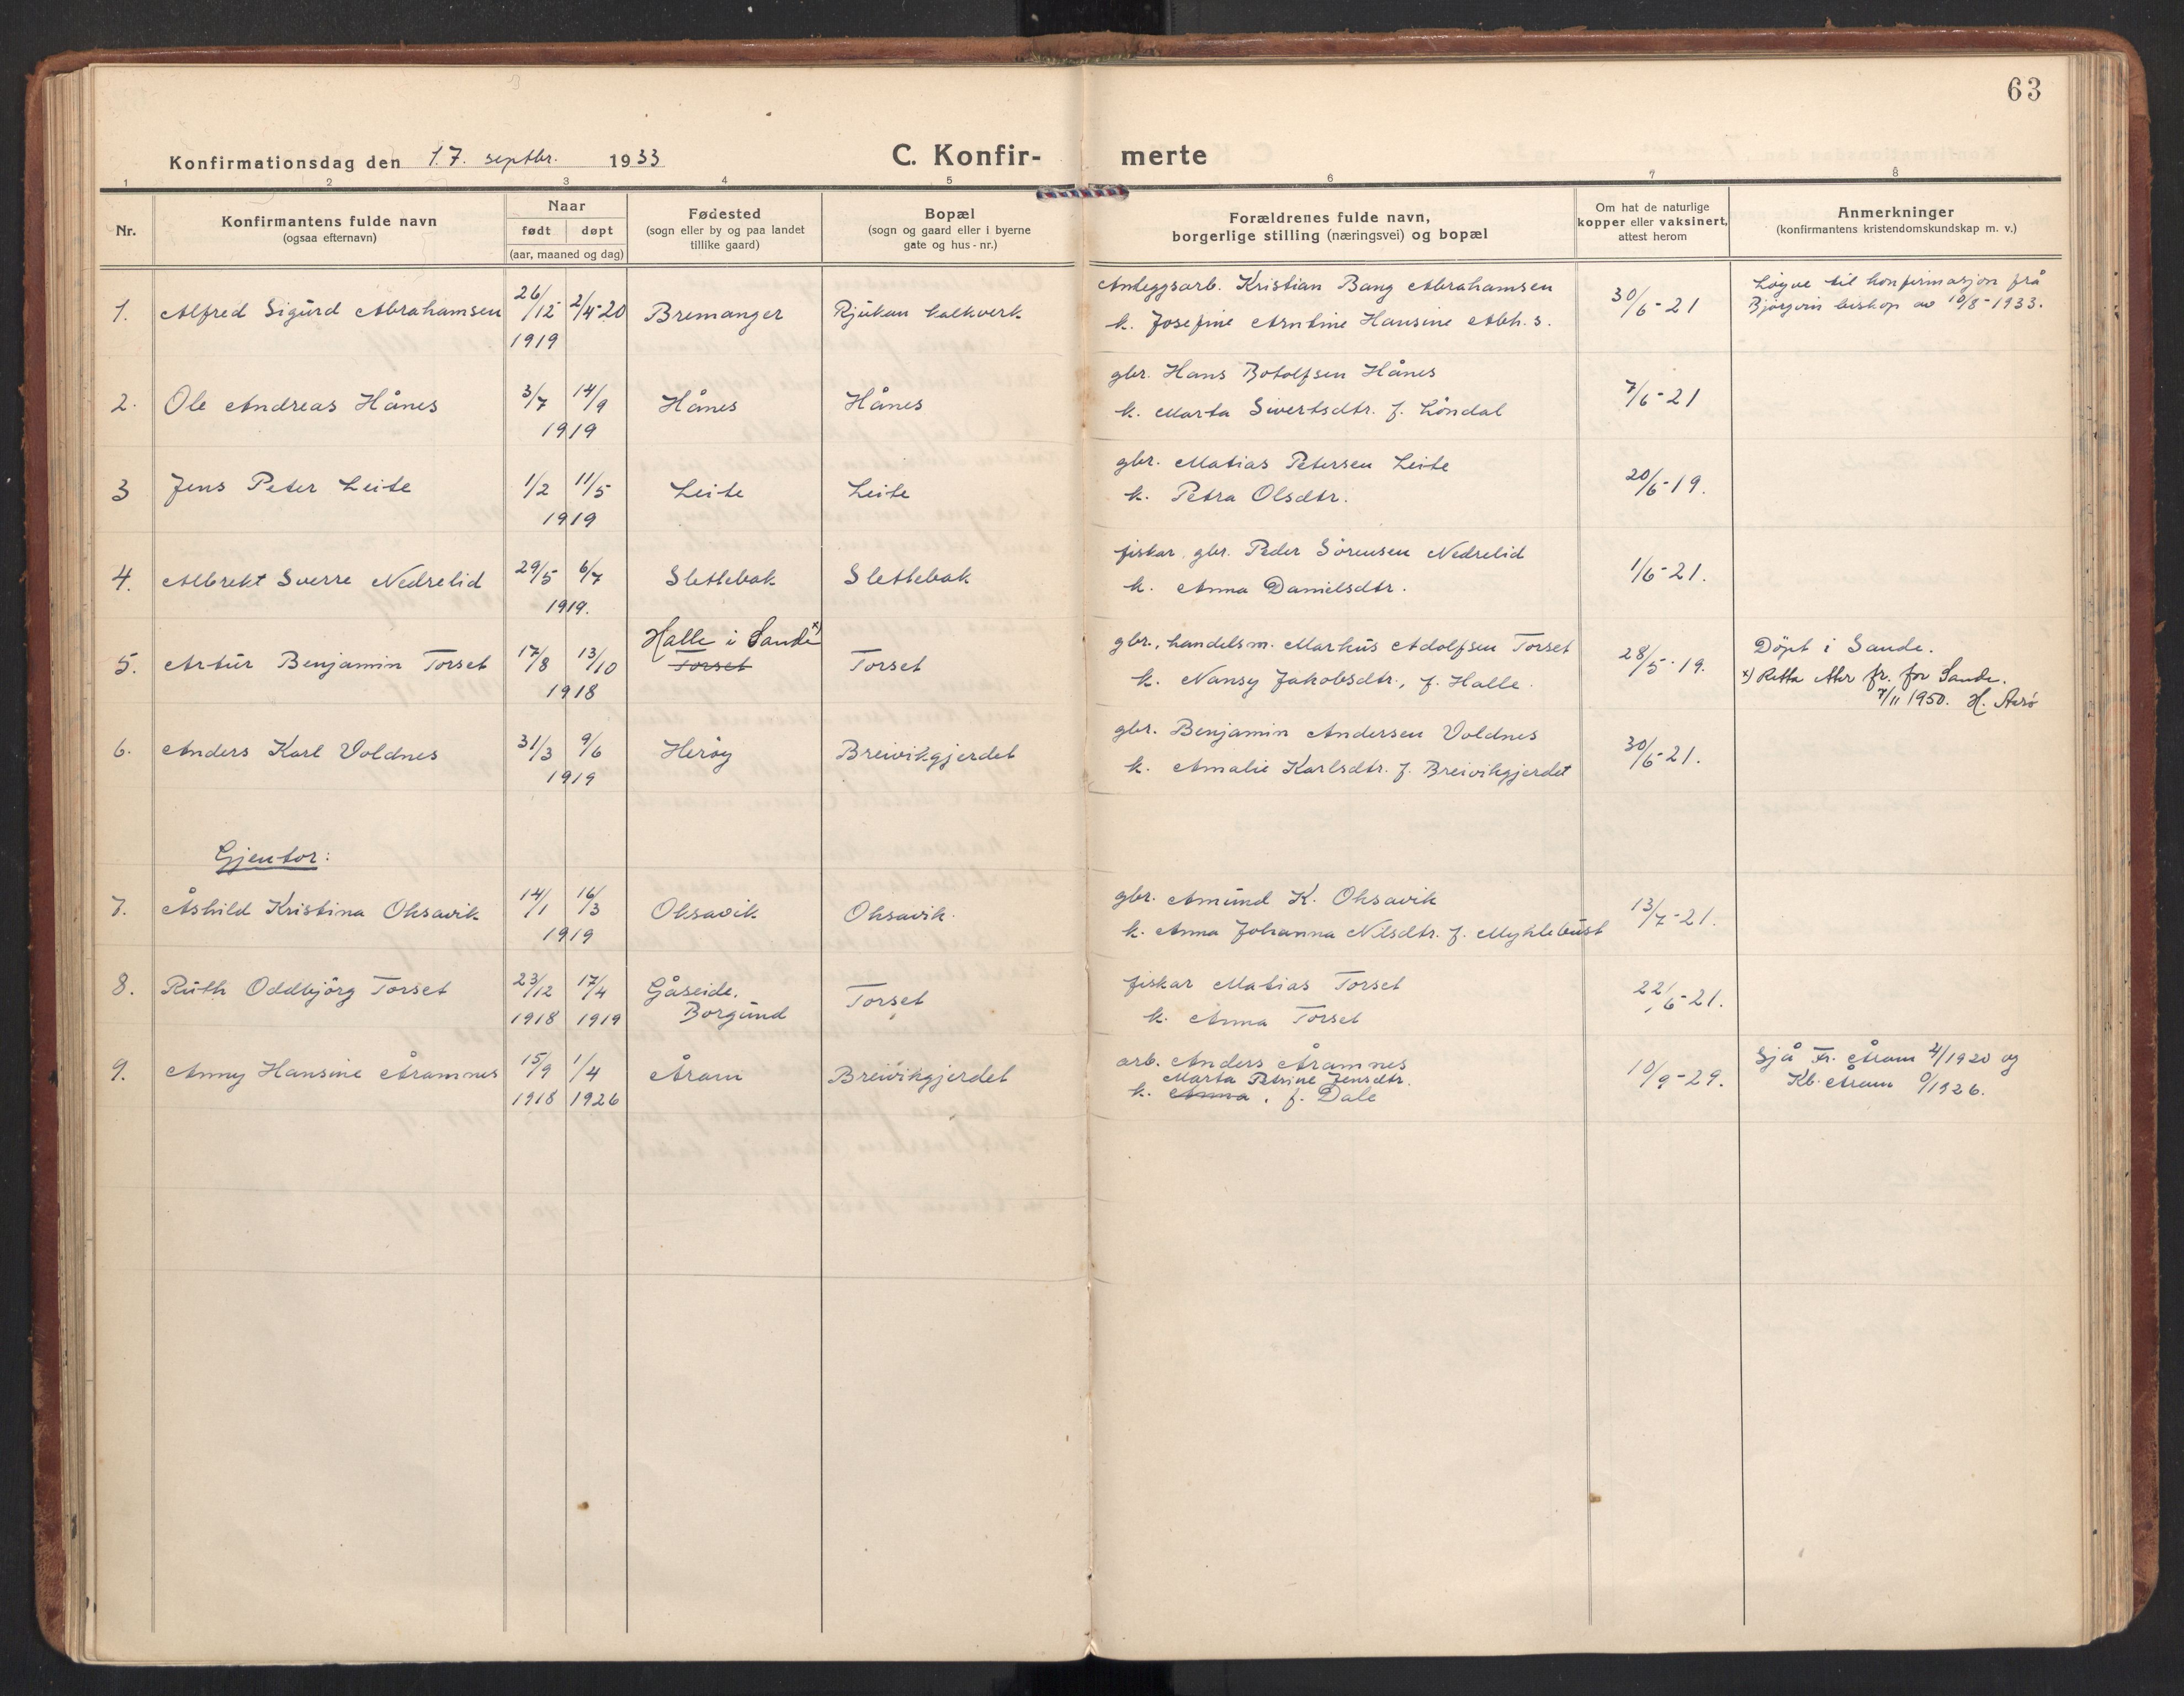 63
Konfirmationsdag den 17. septbr. 1933 C. Konfir- merte
1 2 3 4 5 6 7 8
Nr. Konfirmantens fulde navn (ogsaa efternavn) Naar født døpt (aar, maaned og dag) Fødested (sogn eller by og paa landet tillike gaard) Bopæl (sogn og gaard eller i byerne gate og hus-nr.) Forældrenes fulde navn, borgerlige stilling (næringsvei) og bopæl Om hat de naturlige kopper eller vaksinert, attest herom Anmerkninger (konfirmantens kristendomskundskap m. v.)
1. Alfred Sigurd Abrahamsen 26/12 1919 2/4-20 Bremanger Rjukan kalkverk Anleggsarb. Kristian Bang Abrahamsen 30/6-21 Løyve til konfirmasjon frå
k. Josefine Arntine Hansine Abh.s. Bjørgvin biskop av 10/8-1933.
2. Ole Andreas Hånes 3/7 14/9 1919 Hånes Hånes gbr. Hans Botolfsen Hånes 7/6-21
k. Marta Sivertsdtr. f. Løndal
3 Jens Peter Leite 1/2 11/5 1919 Leite Leite gbr. Matias Petersen Leite 20/6-19.
k. Petra Olsdtr.
4. Albrekt Sverre Nedrelid 29/5 6/7 1919. Slettebak Slettebak fiskar, gbr. Peder Sørensen Nedrelid 1/6-21.
k. Anna Danielsdtr.
5. Artur Benjamin Torset 17/8 13/10 1918 Halle i Sande x) Torset Torset gbr., handelsm. Markus Adolfsen Torset 28/5-19. Döpt i Sande.
k. Nansy Jakobsdtr., f. Halle. x) Retta etter fr. for Sande.
7/11 1950. H. Aarø
6. Anders Karl Voldnes 31/3 9/6 1919 Herøy Breivikgjerdet gbr. Benjamin Andersen Voldnes 30/6-21.
k. Amalie Karlsdtr. f. Breivikgjerdet
Gjentor:
7. Åshild Kristina Oksavik 14/1 16/3 1919 Oksavik Oksavik. gbr. Amund K. Oksavik 13/7-21.
k. Anna Johanna Nilsdtr. f. Myklebust
8. Ruth Oddbjörg Torset 23/12 1918 17/4 1919 Gåseide, Borgund Torset fiskar Matias Torset 22/6-21.
k. Anna Torset
9. Anny Hansine Åramnes 15/9 1918 1/4 1926 Åram Breivikgjerdet arb. Anders Åramnes 10/9-29. Sjå Fr. Åram 4/1920 og
Marta Petrine Jensdtr. Kb. Åram 9/1926.
k. Anna, f. Dale